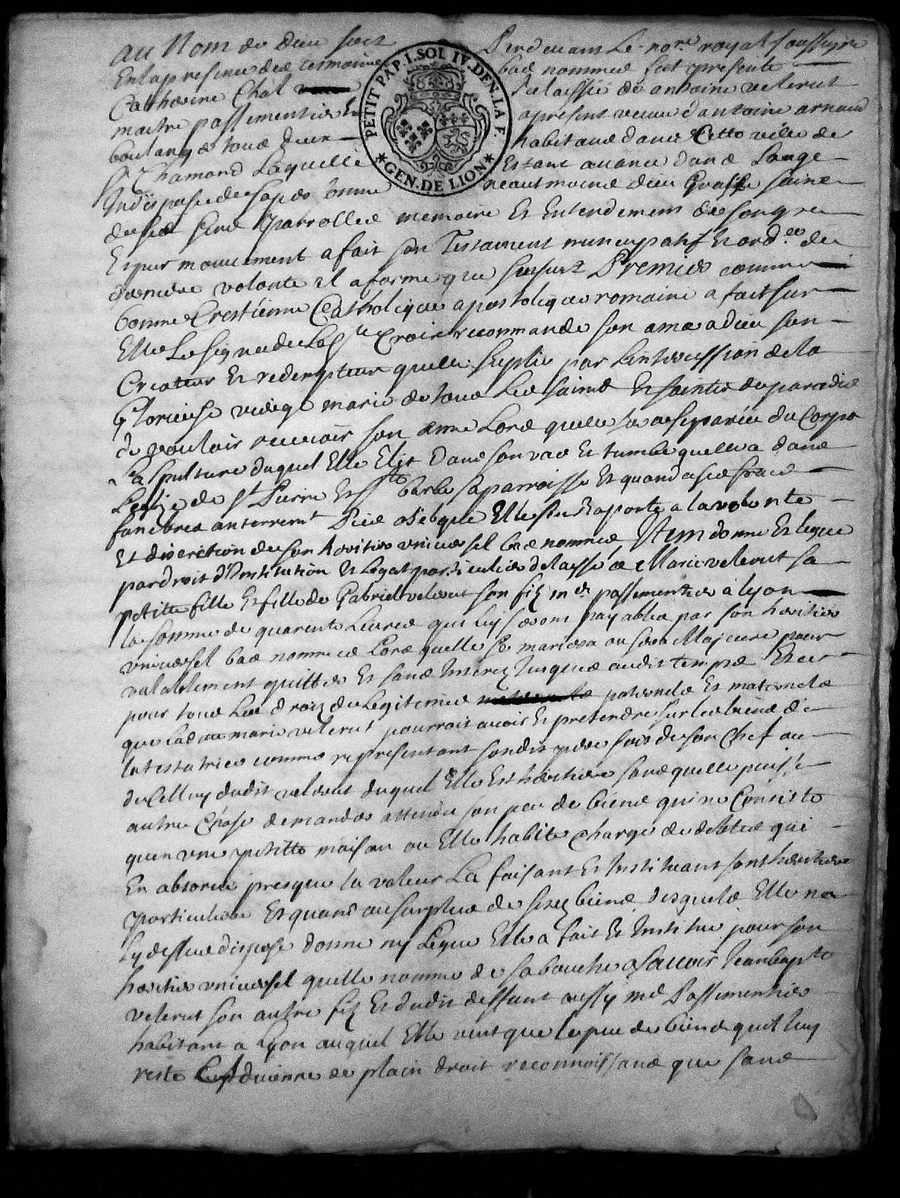 au Nom de dieu soit Pardevant Le no.re royal soussigne
En la presence des temoins bas nommes fut presente
Catherine Chol delaissée de antoine velerut
maitre passementier Et apresent veuve d'antoine arnaud
boulanger tous deux habitans dans Cette ville de
St Chamond Laquelle Estant avancé dans L'aage
Indisposé de son corps neantmoins dieu Grasse saine
de ses sens parolles memoire Et Entendement de son gre
Et pur mouvement a fait son Testament nuncupatif Et ord.ce de
derniere volonte Et a forme que sensuit Premier comme
bonne Crestienne Catholique apostolique romaine a fait sur
Elle Le signe de La S.te Croix recommande son ame a dieu son
Createur Et redempteur quelle suplie par L'intercession de la
Glorieuse vierge marie de tous Les saints Et saintes du paradis
de vouloir recevoir son ame Lors quelle sera separée du Corps
La sepulture duquel Elle Elit Dans son vas Et tumbe quelle a dans
L'eglize de St Pierre Et Ste barbe sa parroisse Et quand a ses frais
funebres anterrem.t Elle sen raporte a la volonte
Et discretion de son heritier universel bas nommé Item donne Et legue
par droit d'Institution Et Legat particulier delaissé a Marie velerut sa
petite fille Et fille de Gabriel velerut son fiz m.e passementier a Lyon
la somme de quarente Livres qui luy seront payables par son heritier
universel bas nommé Lors quelle se mariera ou sera Majeure pour
valablement quitter Et sans Interez Jusques audit temps Et ce
pour tous Les droiz de Legitime paternels Et maternels
que lad.e marie velerut pourroit avoir Et pretendre sur les biens de
la testatrice comme representant sondit pere soit de son Chef ou
de Celluy dudit velerut duquel Elle Est heritiere sans quelle puisse
autre Chose demander attendu son peu de biens qui ne Consiste
quen une petitte maison ou Elle habite chargé de debtes qui
En absorbe presque la valeur La faisant Et Instituant son heritiere
particuliere Et quand au surplus de ses biens desquels Elle na
cy dessus disposé donné ny Legue Elle a fait Et Institue pour son
heritier universel quelle nomme de sa bouche a scavoir Jean bapt.e
velerut son autre fiz Et dudit deffunt aussy m.e Passementier
habitant a Lyon auquel Elle veut que le peu de biens quil luy
reste aduienne de plain droit reconnoissans que sans
PETIT PAP. I. SOL IV. DEN. LA F.
GEN. DE LION